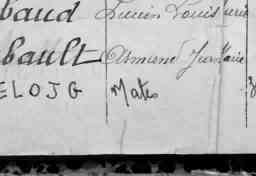 baud Lucien Louis
bault Armand Jean Marie
ELOJG Mateo